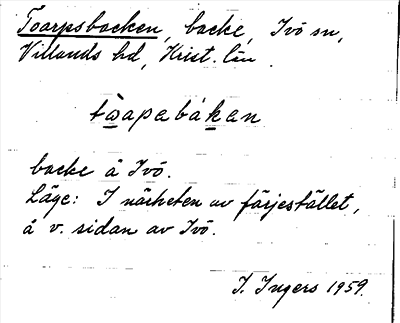 Toarpsbacken, backe, Ivö sn,
Villands hd, Krist. län
tòapabákan
backe å Ivö.
Läge: I närheten av färjestället,
å v. sidan av Ivö.
I. Ingers 1959.